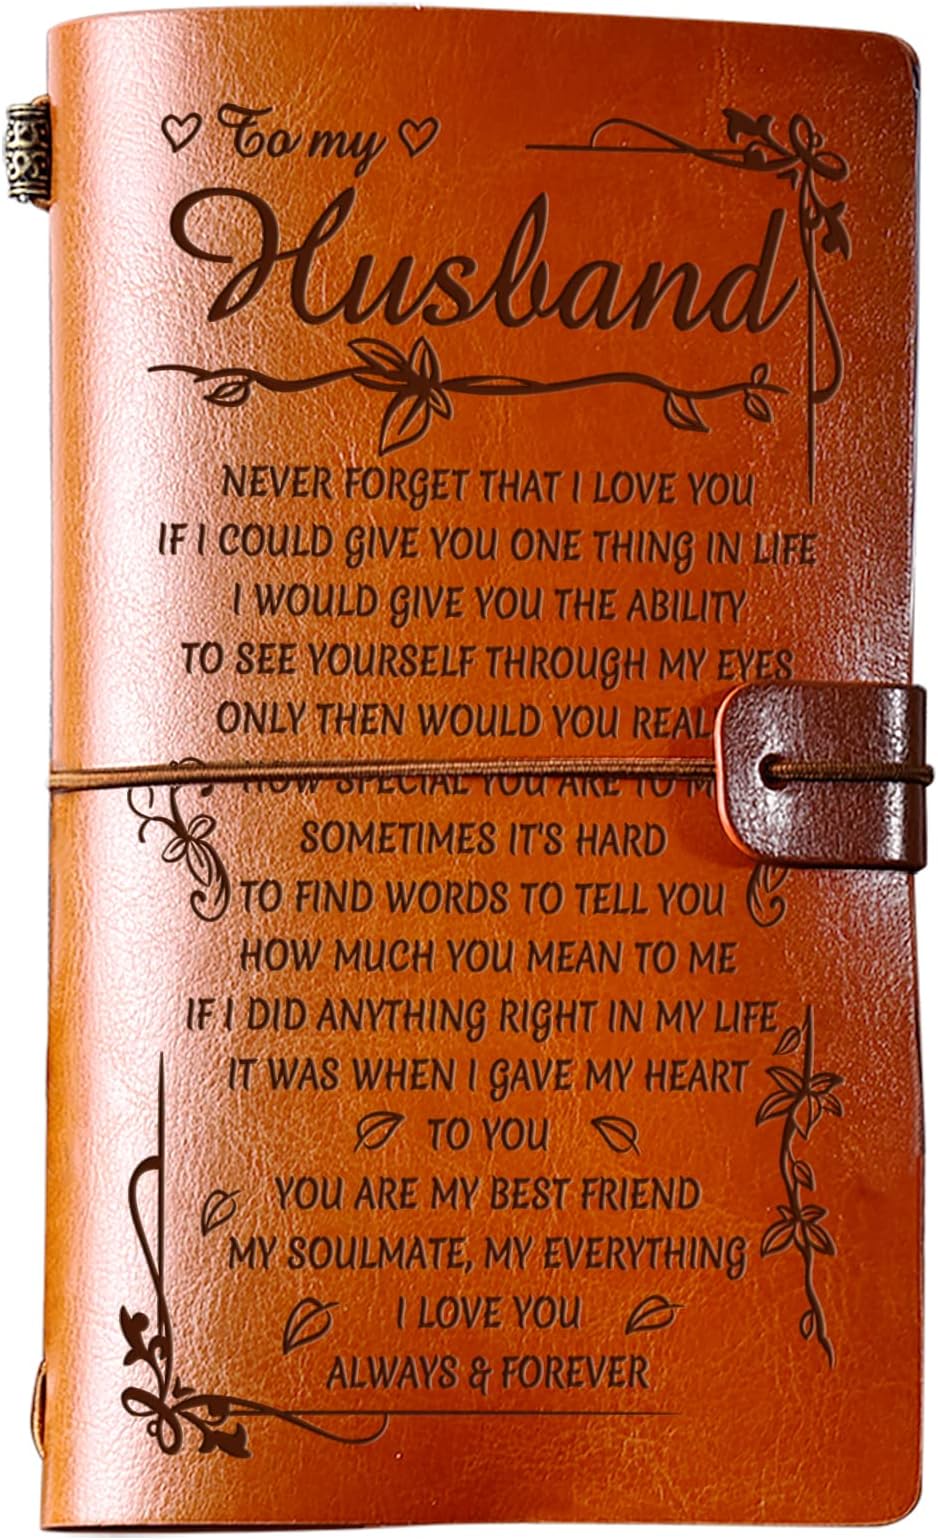 To my
Husband
NEVER FORGET THAT I LOVE YOU
IF I COULD GIVE YOU ONE THING IN LIFE
I WOULD GIVE YOU THE ABILITY
TO SEE YOURSELF THROUGH MY EYES
ONLY THEN WOULD YOU REAL
HOW SPECIAL YOU ARE TO M
SOMETIMES IT'S HARD
TO FIND WORDS TO TELL YOU
HOW MUCH YOU MEAN TO ME
IF I DID ANYTHING RIGHT IN MY LIFE
IT WAS WHEN I GAVE MY HEART
TO YOU
YOU ARE MY BEST FRIEND
MY SOULMATE, MY EVERYTHING
I LOVE YOU
ALWAYS & FOREVER